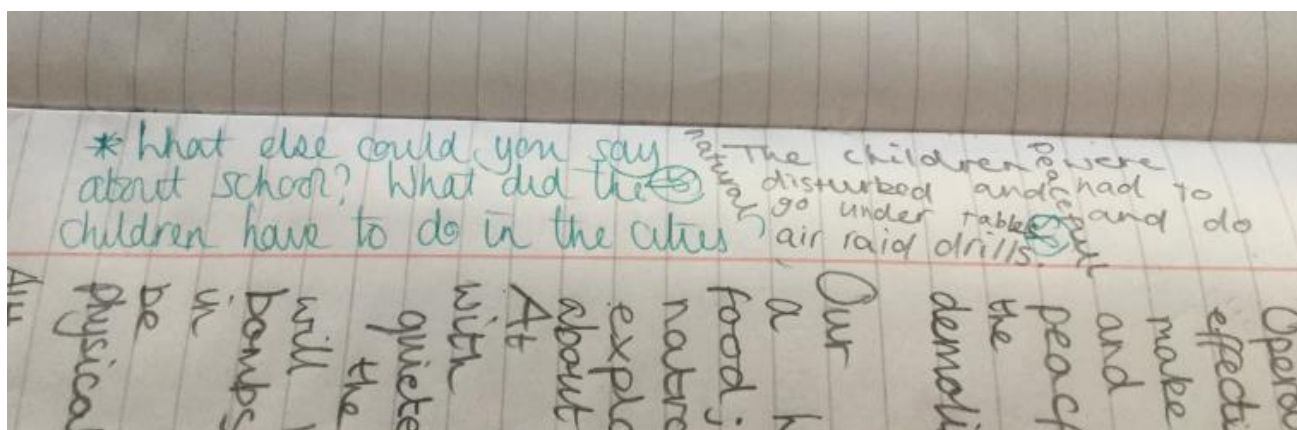 *What else could you say
about school? What did the
children have to do in the cities
The children were
disturbed and had to
go under tables and do
air raid drills.
natural
Opera
effecti
make
and
peacf
the
demoli
Our
a h
food;
explo
about
At
with
quiete
the
will
bombs
in
be
physica